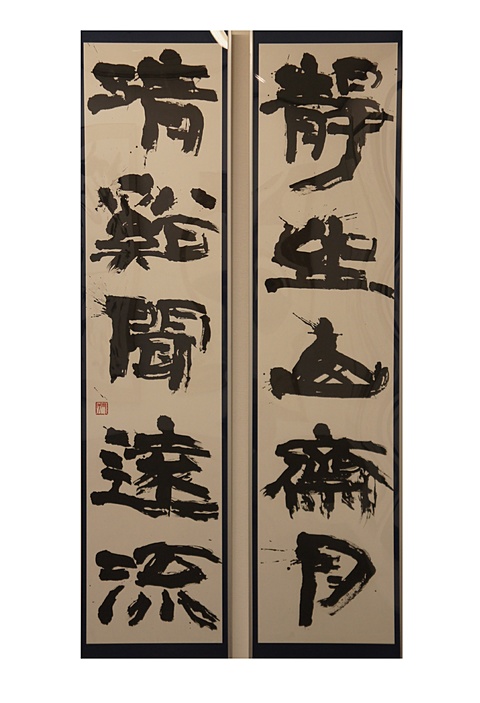 靜坐山齋月
清谿聞遠流